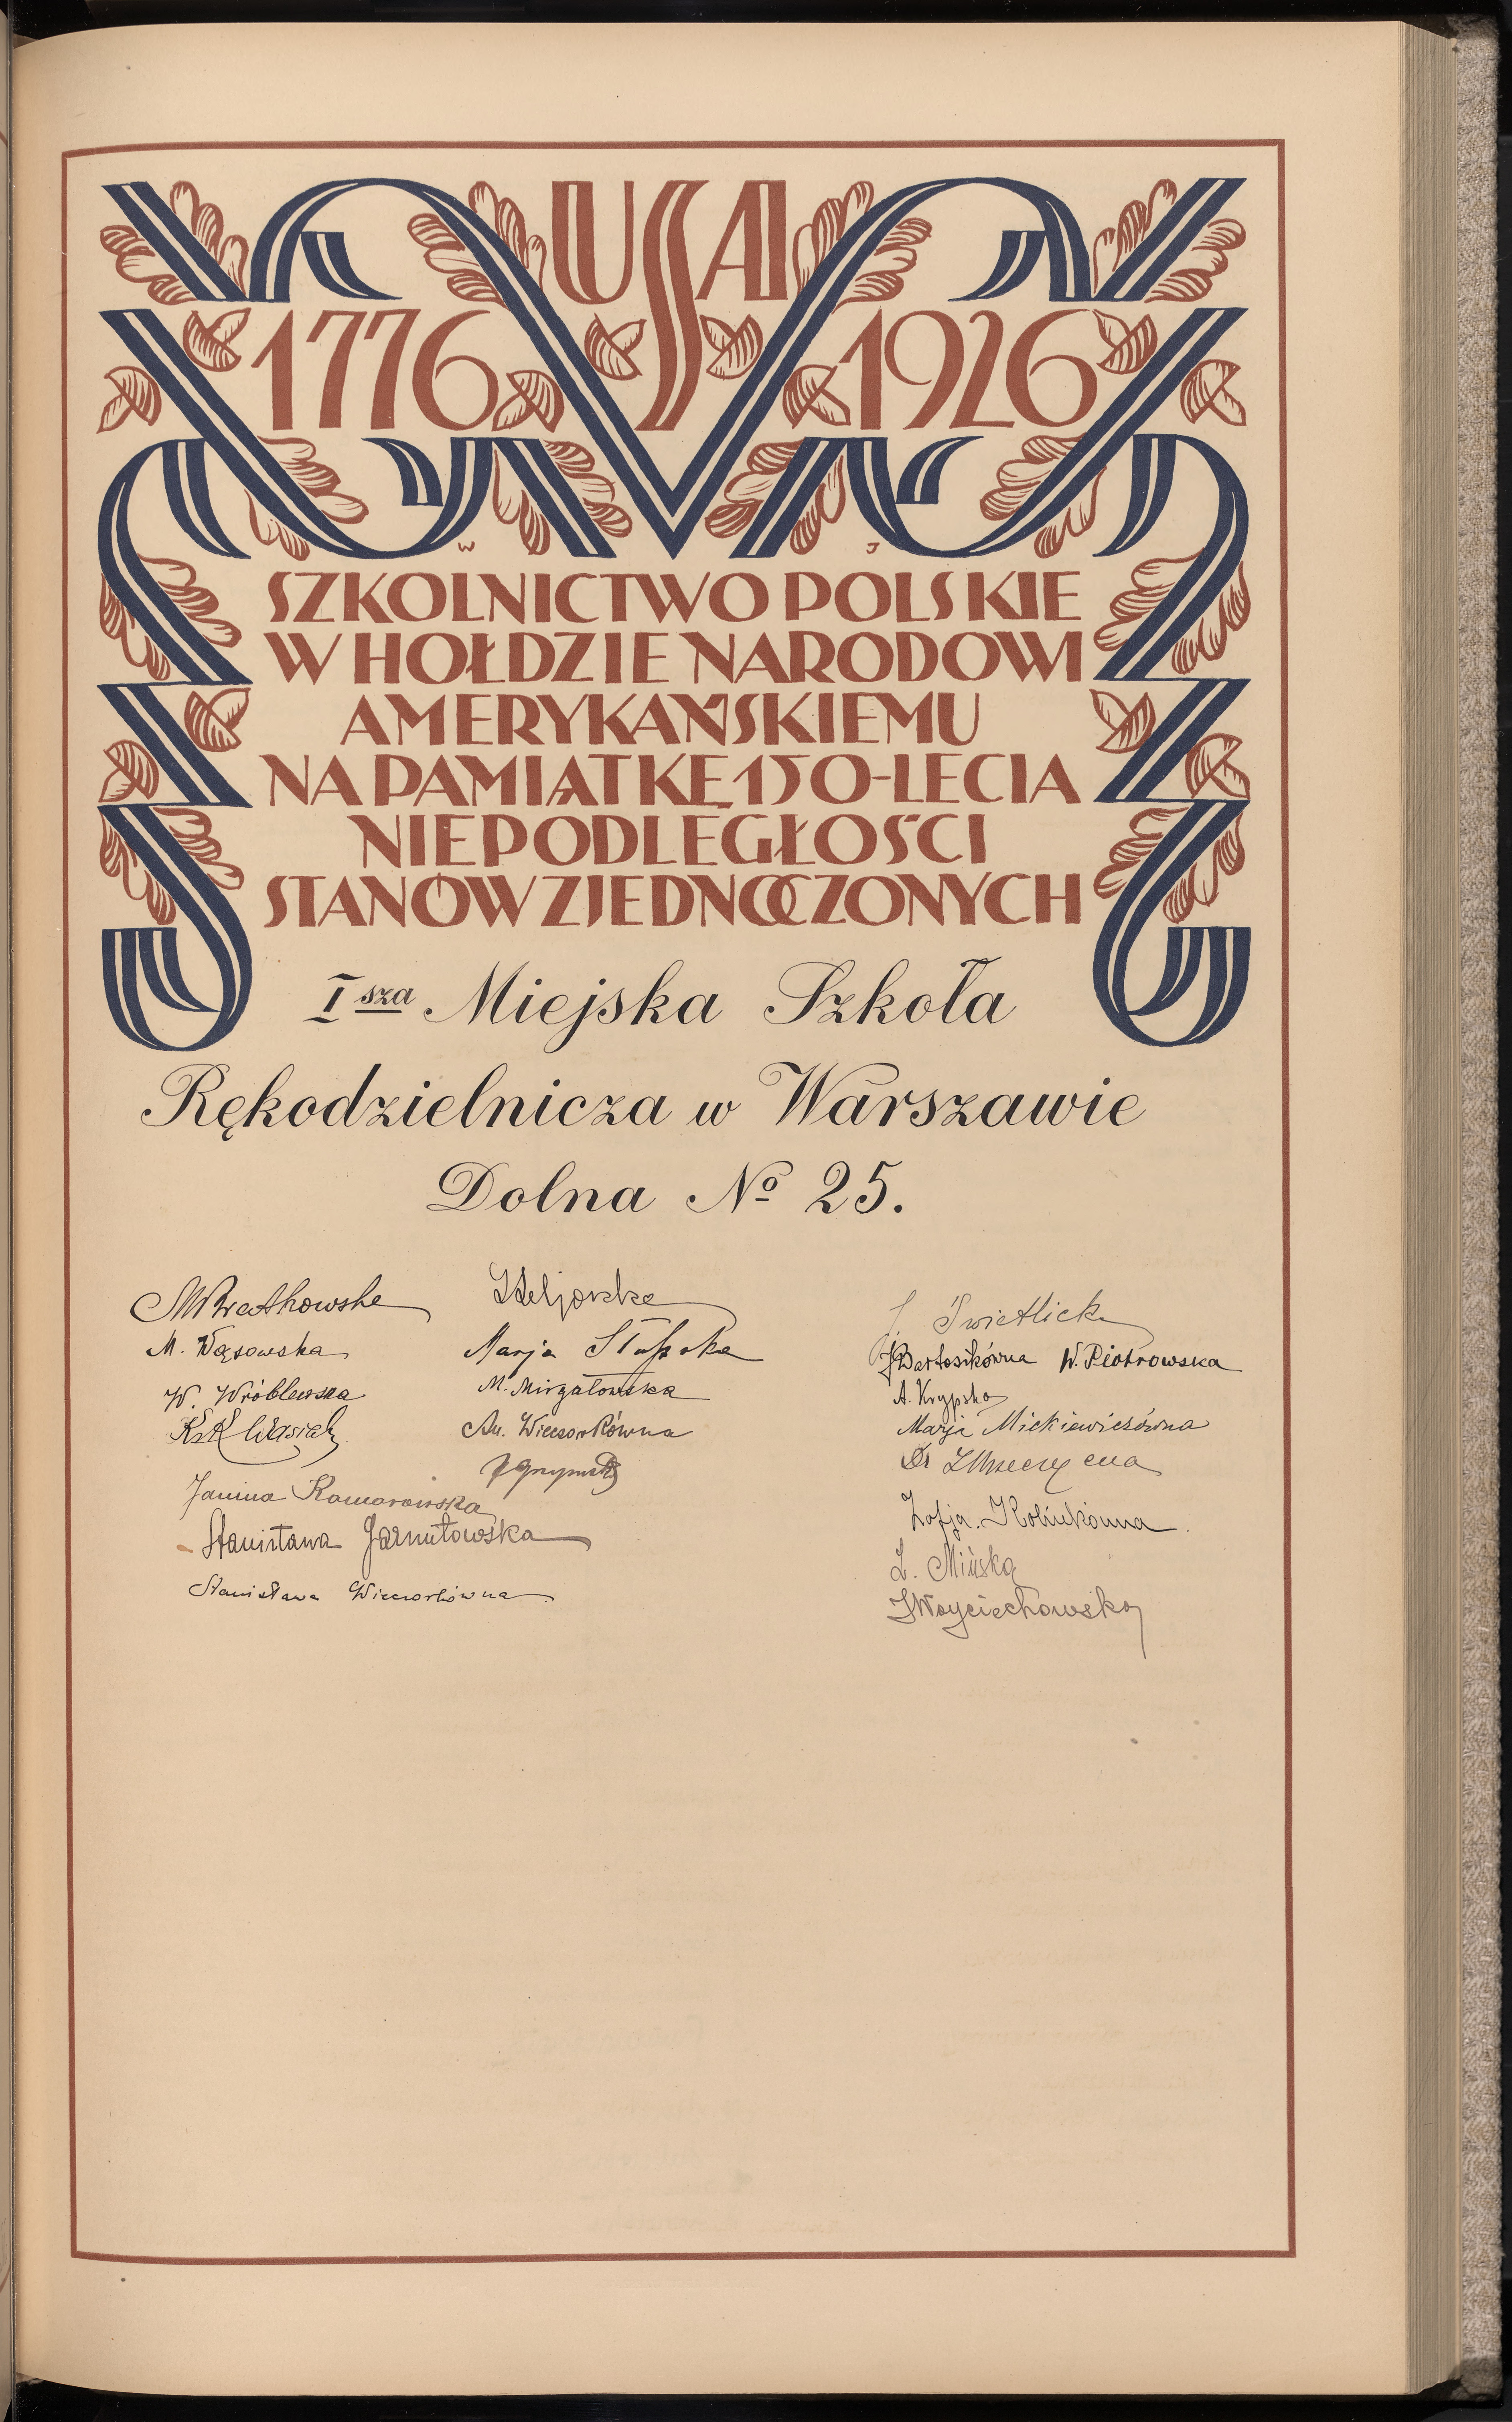 USA
1776 1926
W J
SZKOLNICTWO POLSKIE
W HOŁDZIE NARODOWI
AMERYKAŃSKIEMU
NA PAMIĄTKĘ 150-LECIA
NIEPODLEGŁOŚCI
STANÓW ZJEDNOCZONYCH
I sza Miejska Szkoła
Rękodzielnicza w Warszawie
Dolna No 25.
M. Wąsowska
W. Wróblewska
Janina Komorowska
Stanisława Jarnutowska
Stanisława Wieczorkówna
Marja
M. Mirgałowska
An. Wieczorkówna
J. Świetlicka
J Bartosikówna W. Piotrowska
A. Krypska
Marja Mickiewiczówna
Dr
Zofja
Z. Mińska
J Woyciechowska